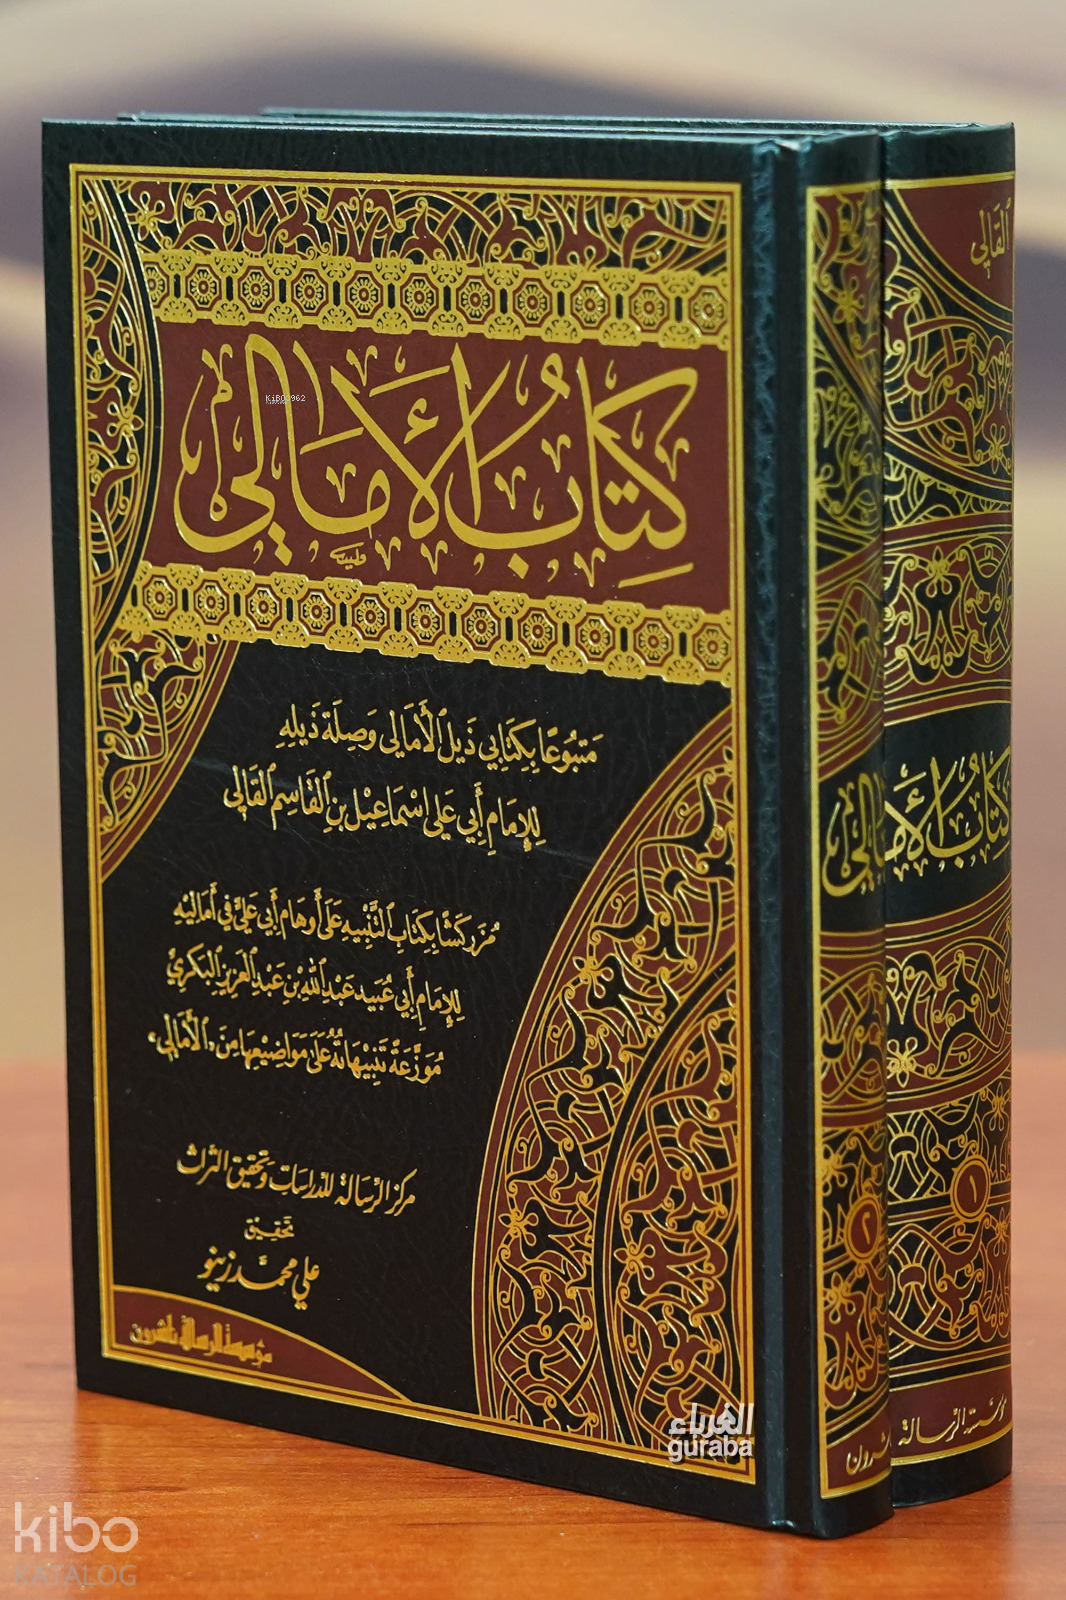 كِتَابُ الأَمَالِي
KiBO0962
مَتبُوعًا بِكِتَابَي ذَيل الأَمَالي وَصِلَة ذَيلِهِ
لِلإِمَامِ أَبي عَلي اسْمَاعِيْل بنِ القَاسِمِ القَالي
مُزَركَشًا بِكِتَابِ التَّنْبِيهِ عَلَى أوهَام أَبي عَليٍّ في أمَالِيْهِ
لِلإمَامِ أَبي عُبَيد عَبْدِ اللَّهِ بْنِ عَبدِ العَزِيزِ البَكريِّ
مُوَزَّعَةً تَنبِيْهَاتُهُ عَلَى مَوَاضِيْعِهَا مِنَ «الأَمَالي»
مركز الرسالة للدراسات وتحقيق التراث
تحقيق
علي محمد زينو
مؤسسة الرسالة ناشرون
كتاب الأمالي
القالي
١
٢
مؤسسة الرسالة
شرون
الغرباء
guraba
kibo
KATALOG